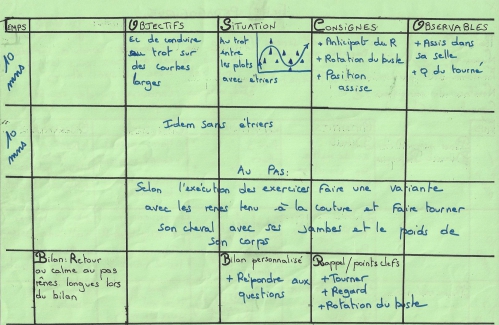 EMPS OBJECTIFS SITUATION CONSIGNES OBSERVABLES
10 mns
Ec de conduire
au trot sur
des courbes
larges
Au trot
entre
les plots
avec étriers
+ Anticipat du R
+ Rotation du buste
+ Position
assise
+ Assis dans
sa selle
+ Q du tourné
10 mns
Idem sans étriers
AU PAS:
Selon l'exécution des exercices faire une variante
avec les rênes tenu à la couture et faire tourner
son cheval avec ses jambes et le poids de
son corps
Bilan: Retour
au calme au pas
rênes longues lors
du bilan
Bilan personnalisé
+ Répondre aux
questions
Rappel/points clefs
+ Tourner
+ Regard
+ Rotation du buste